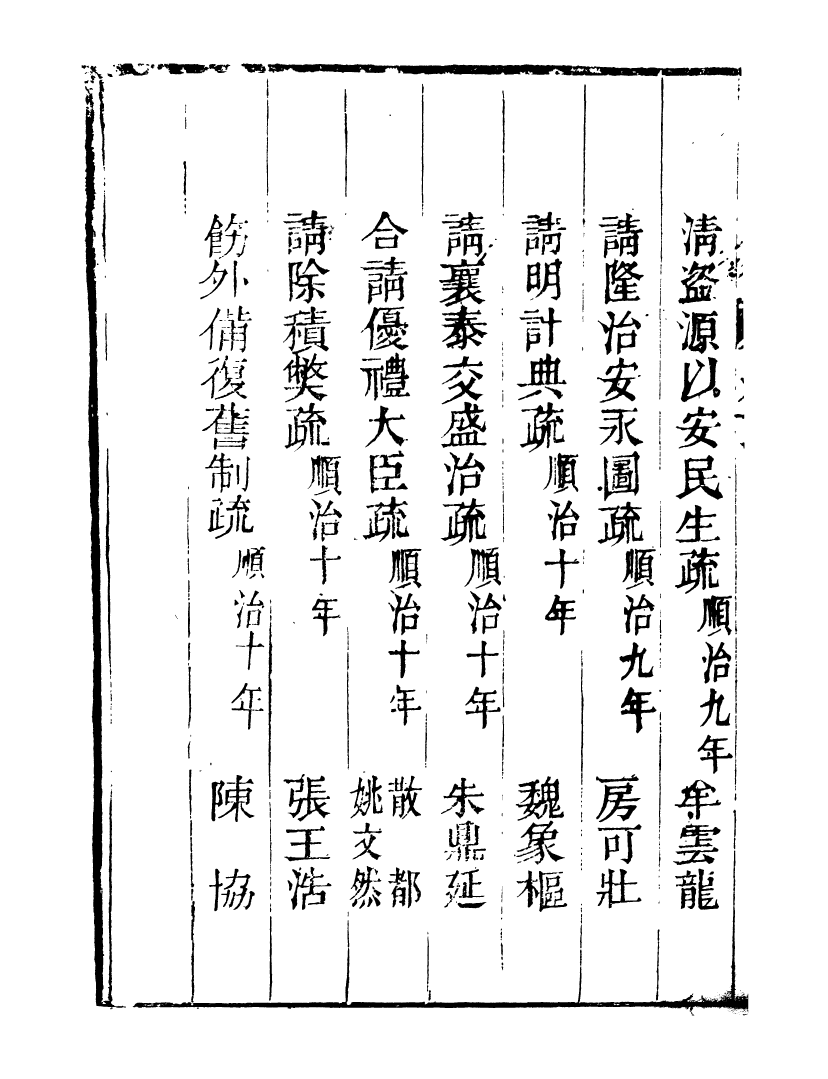 清盜源以安民生疏 順治九年 牟雲龍
請隆治安永圖疏 順治九年 房可壯
請明計典疏 順治十年 魏象樞
請襄泰交盛治疏 順治十年 朱鼎延
合請優禮大臣疏 順治十年 散都 姚文然
請除積獘疏 順治十年 張王浩
餝外備復舊制疏 順治十年 陳協